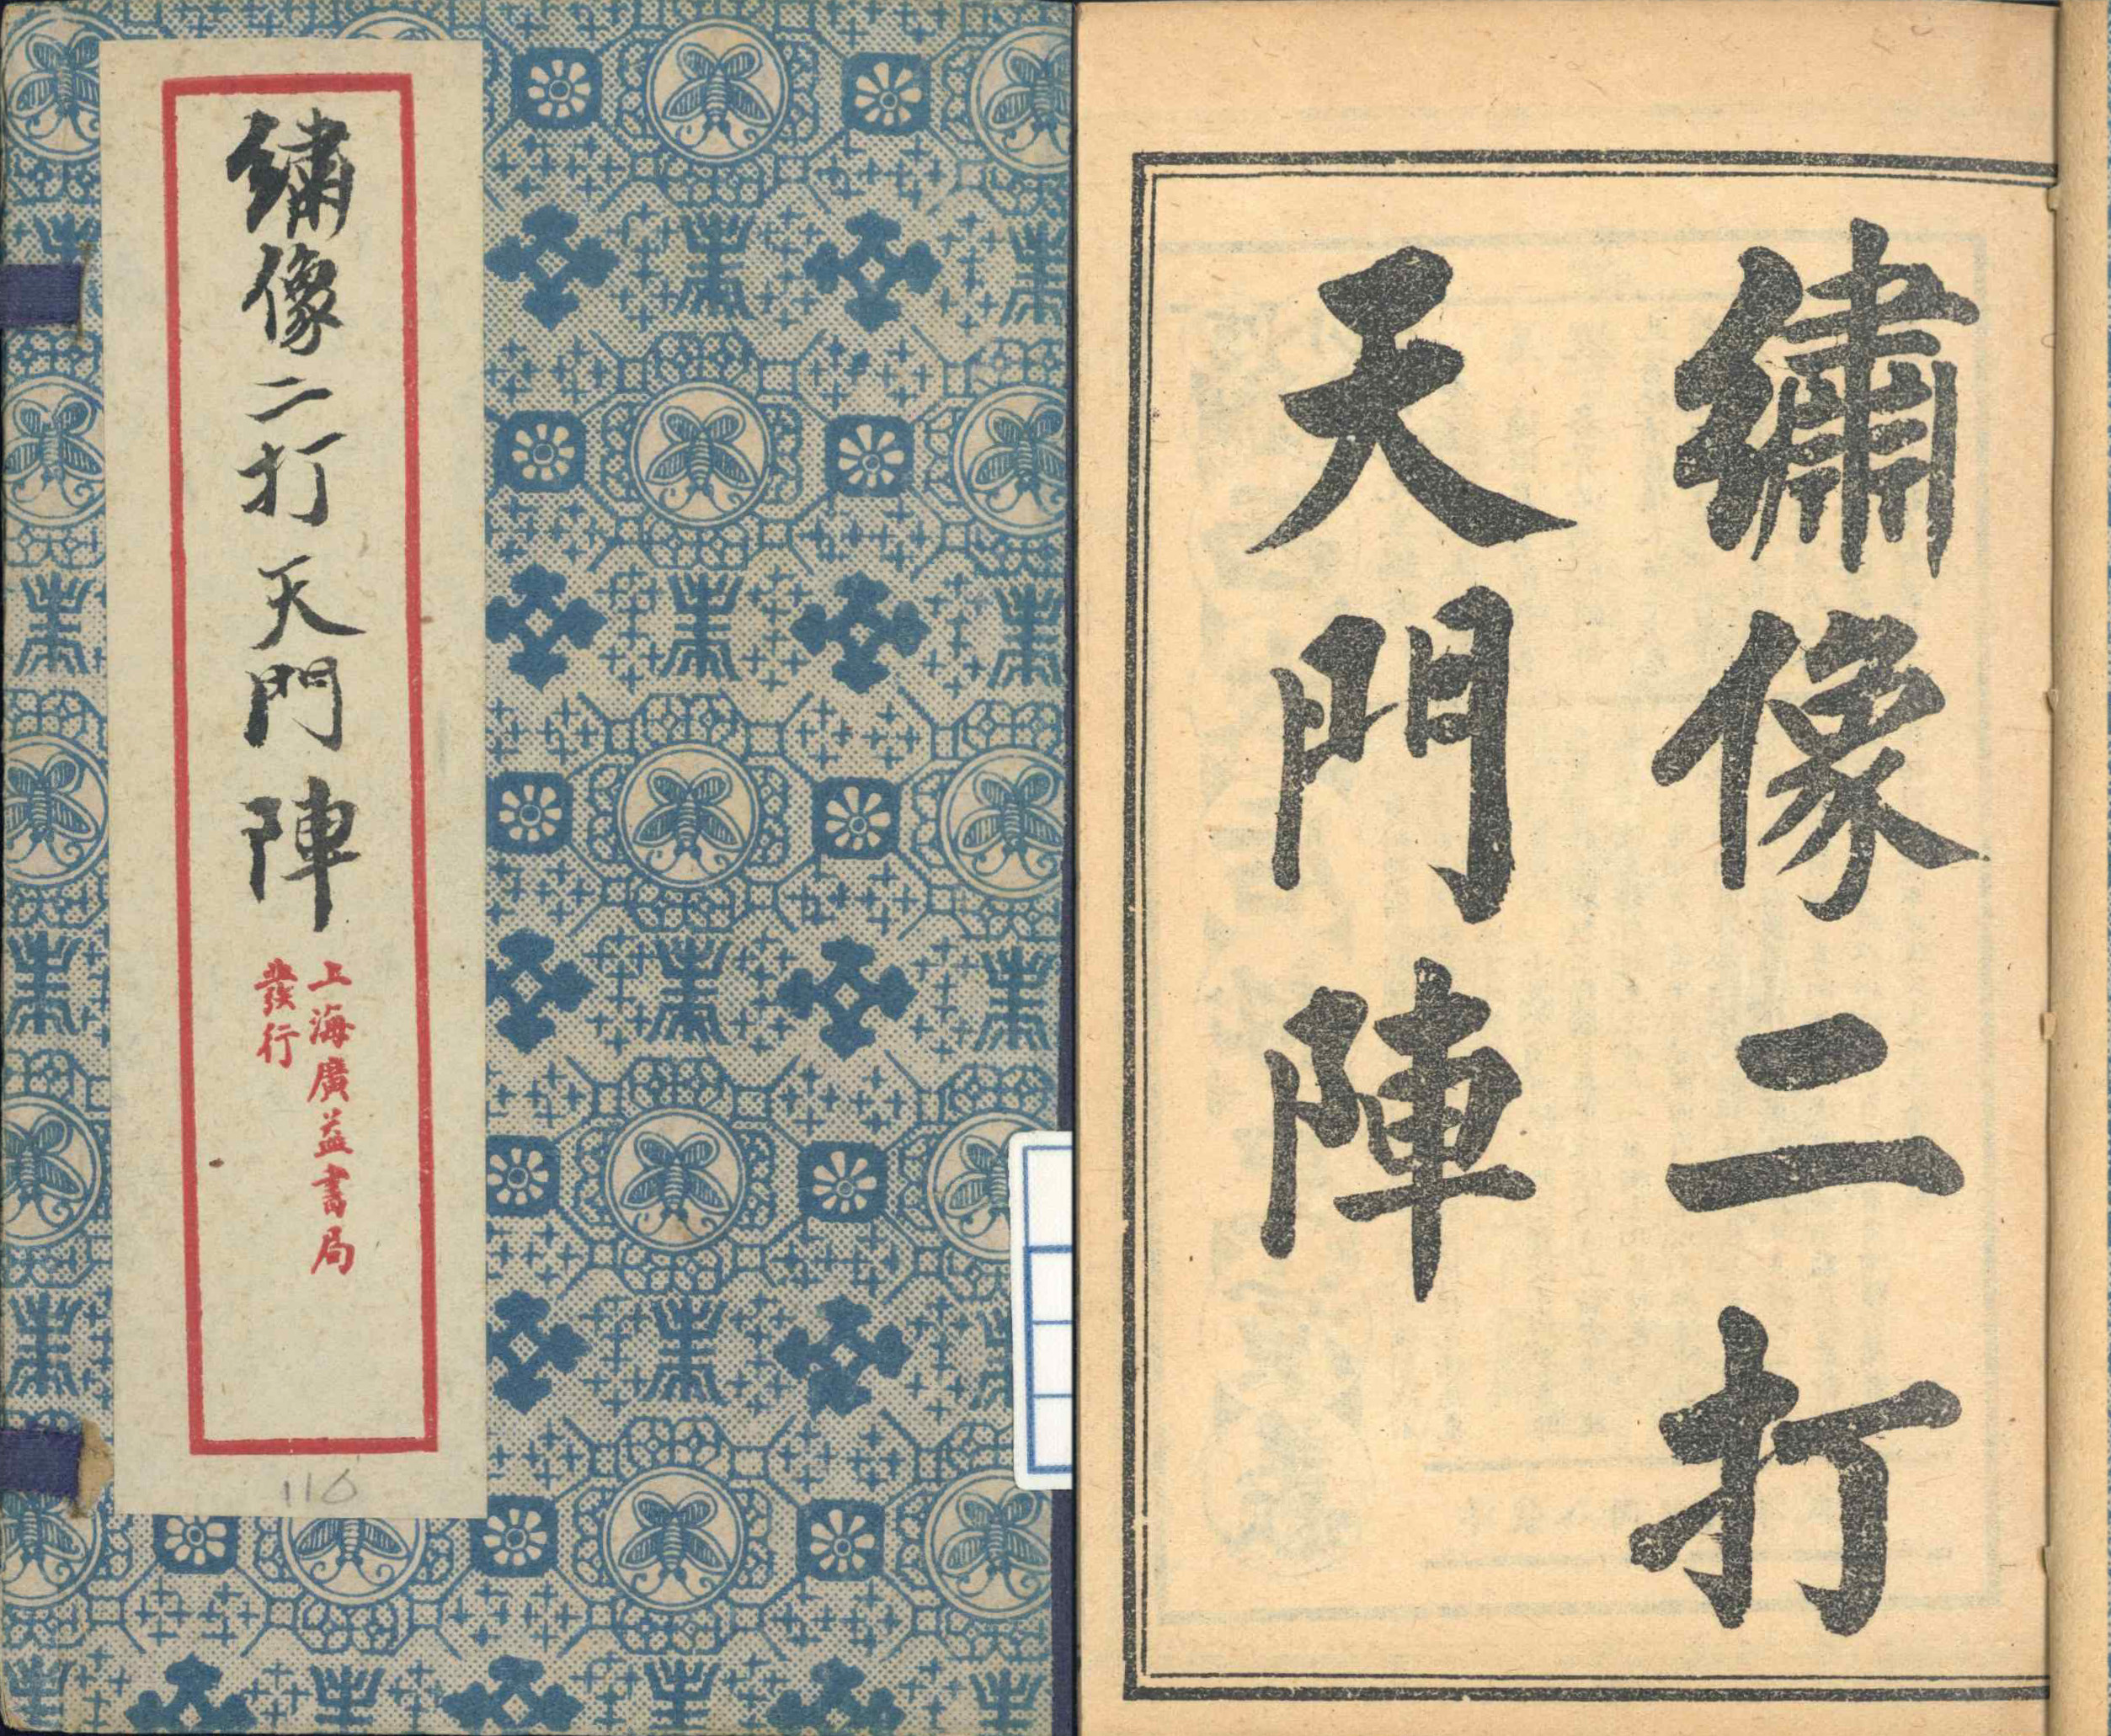 繡像二打天門陣
上海廣益書局
發行
116
繡像二打
天門陣